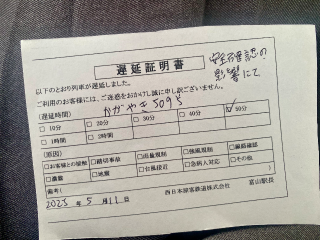 遅延証明書
安全確認の
影響にて
以下のとおり列車が遅延しました。
ご利用のお客様には、ご迷惑をおかけし誠に申し訳ございません。
(遅延時間) かがやき509号
□ 10分 □ 20分 □ 30分 □ 40分 ☑ 50分
□ 1時間 □ 2時間
(原因)
□お客様との接触 □踏切事故 □雨量規制 □強風規制 □線路確認
□濃霧 □地震 □台風接近 □急病人対応 □その他( )
備考( )
2023年5月11日 西日本旅客鉄道株式会社 富山駅長